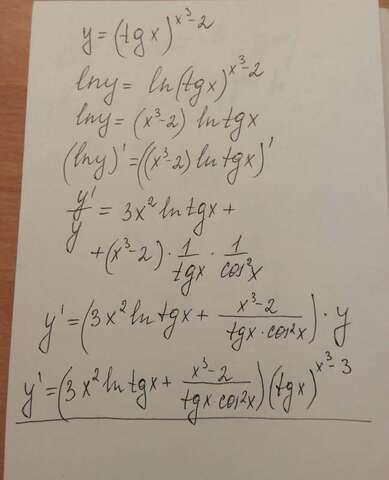 y = (tgx)^{x³-2}
lny = ln(tgx)^{x³-2}
lny = (x³-2) lntgx
(lny)' = ((x³-2) lntgx)'
y'/y = 3x² lntgx +
+ (x³-2) · 1/tgx · 1/cos²x
y' = (3x² lntgx + (x³-2)/(tgx·cos²x)) · y
y' = (3x² lntgx + (x³-2)/(tgx·cos²x)) (tgx)^{x³-3}